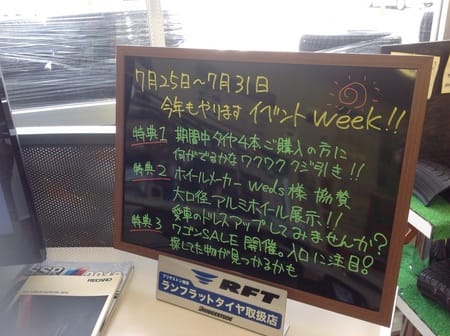 7月25日〜7月31日
今年もやります イベント week!!
特典1 期間中タイヤ4本ご購入の方に
何がでるかな ワクワク クジ引き!!
特典2 ホイールメーカー weds様 協賛
大口径 アルミホイール展示!!
特典3 愛車のドレスアップしてみませんか?
ワゴンSALE 開催。入口に注目!
探してた物が見つかるかも
RFT
ランフラットタイヤ取扱店
BRIDGESTONE
RECARO